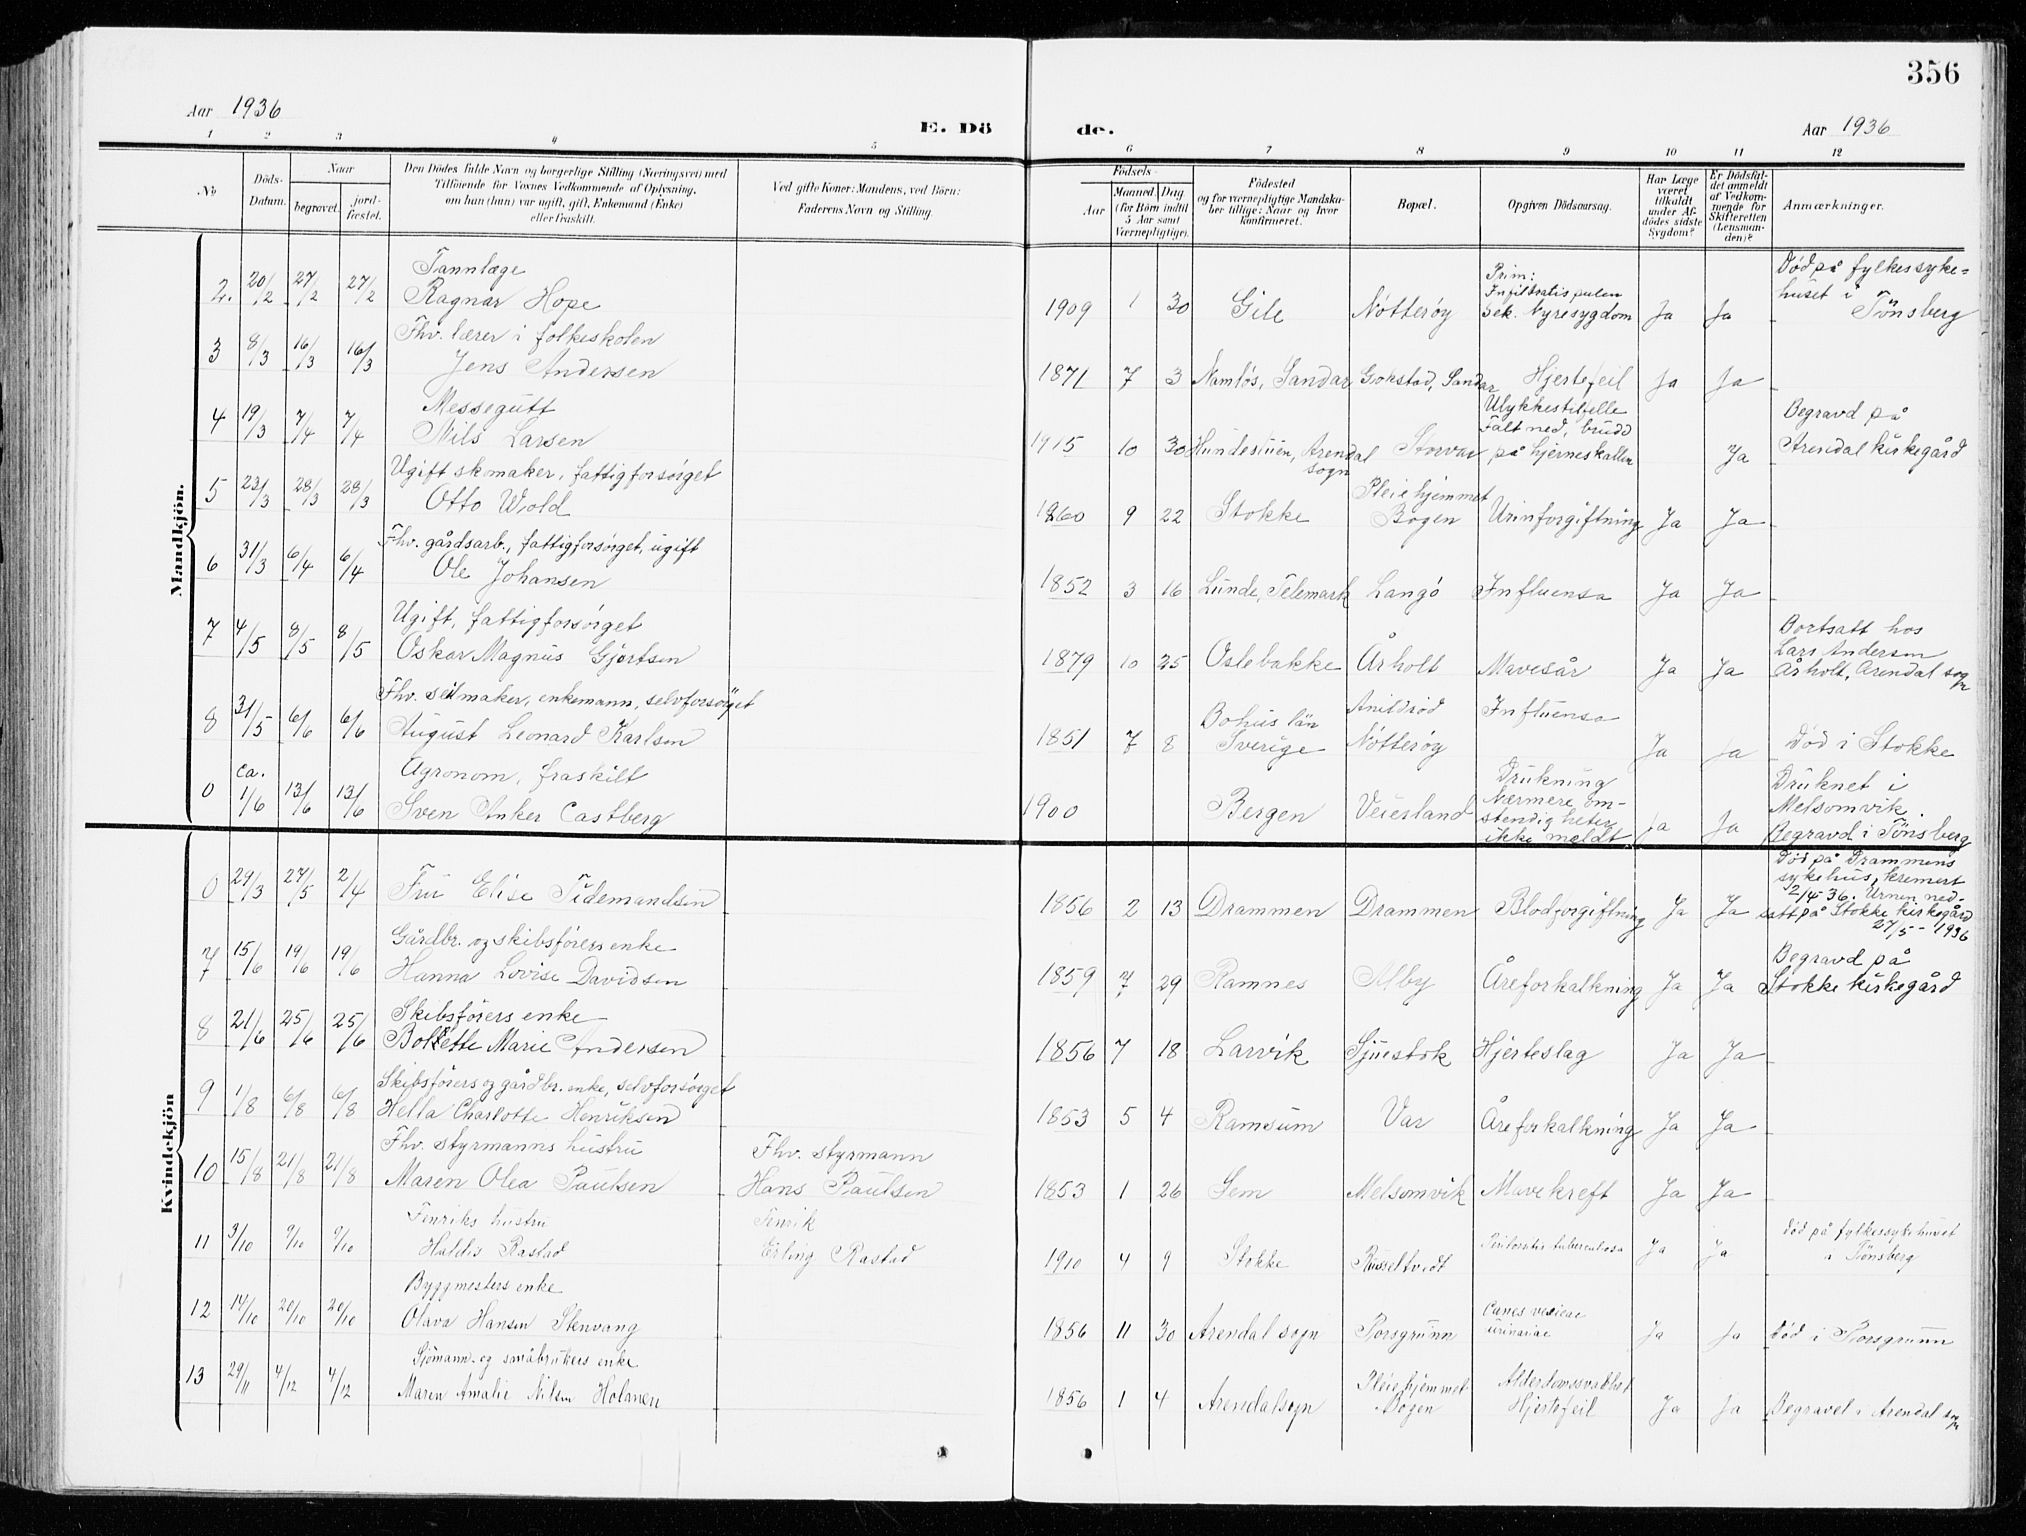 356
Aar 1936
E. Dö
de.
Aar 1936
1 2 3 4 5 6 7 8 9 10 11 12
No
Döds-
Datum.
Naar
begravet.
jord-
festet.
Den Dödes fulde Navn og borgerlige Stilling (Næringsvei) med
Tilföiende for Voxnes Vedkommende af Oplysning,
om han (hun) var ugift, gift, Enkemand (Enke)
eller fraskilt.
Ved gifte Koner: Mandens, ved Börn:
Faderens Navn og Stilling.
Födsels-
Aar
Maaned, Dag
(for Börn indtil
5 Aar samt
Værnepligtige).
Födested
og for værnepligtige Mandska-
ber tillige: Naar og hvor
konfirmeret.
Bopæl.
Opgiven Dödsaarsag.
Har Læge
været
tilkaldt
under Af-
dödes sidste
Sygdom?
Er Dödsfal-
det anmeldt
af Vedkom-
mende for
Skifteretten
(Lensman-
den)?
Anmærkninger.
Mandkjön.
2. 20/2 27/2 27/2 Tannlæge
Ragnar Hope
1909 1 30 Gile Nötteröy
Prim:
Infiltratis pulm
Sek. Nyresygdom Ja Ja
Död på fylkessyke-
huset i
Tönsberg
3 8/3 16/3 16/3 Fhv. lærer i folkeskolen
Jens Andersen
1871 7 3 Namlös, Sandar Gokstad, Sandar Hjertefeil Ja Ja
4 19/3 7/4 7/4 Messegutt
Nils Larsen
1915 10 30 Hundestuen, Arendal
sogn Storvar
Ulykkestilfelle
Falt ned, brudd
på hjerneskallen Ja
Begravd på
Arendal kirkegård
5 23/3 28/3 28/3 Ugift skmaker, fattigforsörget
Otto Wold
1860 9 22 Stokke Pleiehjemmet
Bogen Urinforgiftning Ja Ja
6 31/3 6/4 6/4 Fhv. gårdsarb., fattigforsörget, ugift
Ole Johansen
1852 3 16 Lunde, Telemark Langö Influensa Ja Ja
7 4/5 8/5 8/5 Ugift, fattigforsörget
Oskar Magnus Gjertsen
1879 10 25 Oslebakke Årholt Mavesår Ja Ja
Bortsatt hos
Lars Andersen
Årholt, Arendal sogn
8 31/5 6/6 6/6 Fhv. seilmaker, enkemann, selvforsörget
August Leonard Karlsen
1851 7 8 Bohus län
Sverige
Nötteröy Influensa Ja Ja Död i Stokke
0 ca. 1/6 13/6 13/6 Agronom, fraskilt
Sven Anker Castberg
1900 Bergen Veiesland
Drukning
Nærmere om-
stendigheter
ikke meldt Ja Ja
Druknet i
Melsomvik.
Begravd i Tönsberg
Kvindekjön
0 29/3 27/5 2/4 Fru Elise Tidemandsen
1856 2 13 Drammen Drammen Blodforgiftning Ja Ja
Död på Drammens
sykehus, kremert
2/4 36. Urnen ned-
satt på Stokke kirkegård
27/5 - 1936
7 15/6 19/6 19/6 Gårdbr. og skibsförers enke
Hanna Lovise Davidsen
1859 7 29 Ramnes Alby Åreforkalkning Ja Ja
Begravd på
Stokke kirkegård
8 21/6 25/6 25/6 Skibsförers enke
Bollette Marie Andersen
1856 7 18 Larvik Sjuestok Hjerteslag Ja Ja
9 1/8 6/8 6/8 Skibsförers og gårdbr. enke, selvforsörget
Hella Charlotte Henriksen
1853 5 4 Ramsum Var Åreforkalkning Ja Ja
10 15/8 21/8 21/8 Fhv. styrmanns hustru
Maren Olea Paulsen
Fhv. styrmann
Hans Paulsen
1853 1 26 Sem Melsomvik Mavekreft Ja Ja
11 3/10 9/10 9/10 Fenriks hustru
Haldis Rastad
Fenrik
Erling Rastad
1910 4 9 Stokke Russeltvedt tuberculosa Ja Ja
Död på fylkessykehuset
i Tönsberg
12 14/10 20/10 20/10 Byggmesters enke
Olava Hansen Stenvang
1856 11 30 Arendal sogn Porsgrunn
vesicae
urinariae Ja Ja Död i Porsgrunn
13 29/11 4/12 4/12 Sjömann og småbrukers enke
Maren Amalie Nilsen Holmen
1856 1 4 Arendal sogn Pleiehjemmet
Bogen
Alderdomssvakhet
Hjertefeil Ja Ja Begravet i Arendal sogn